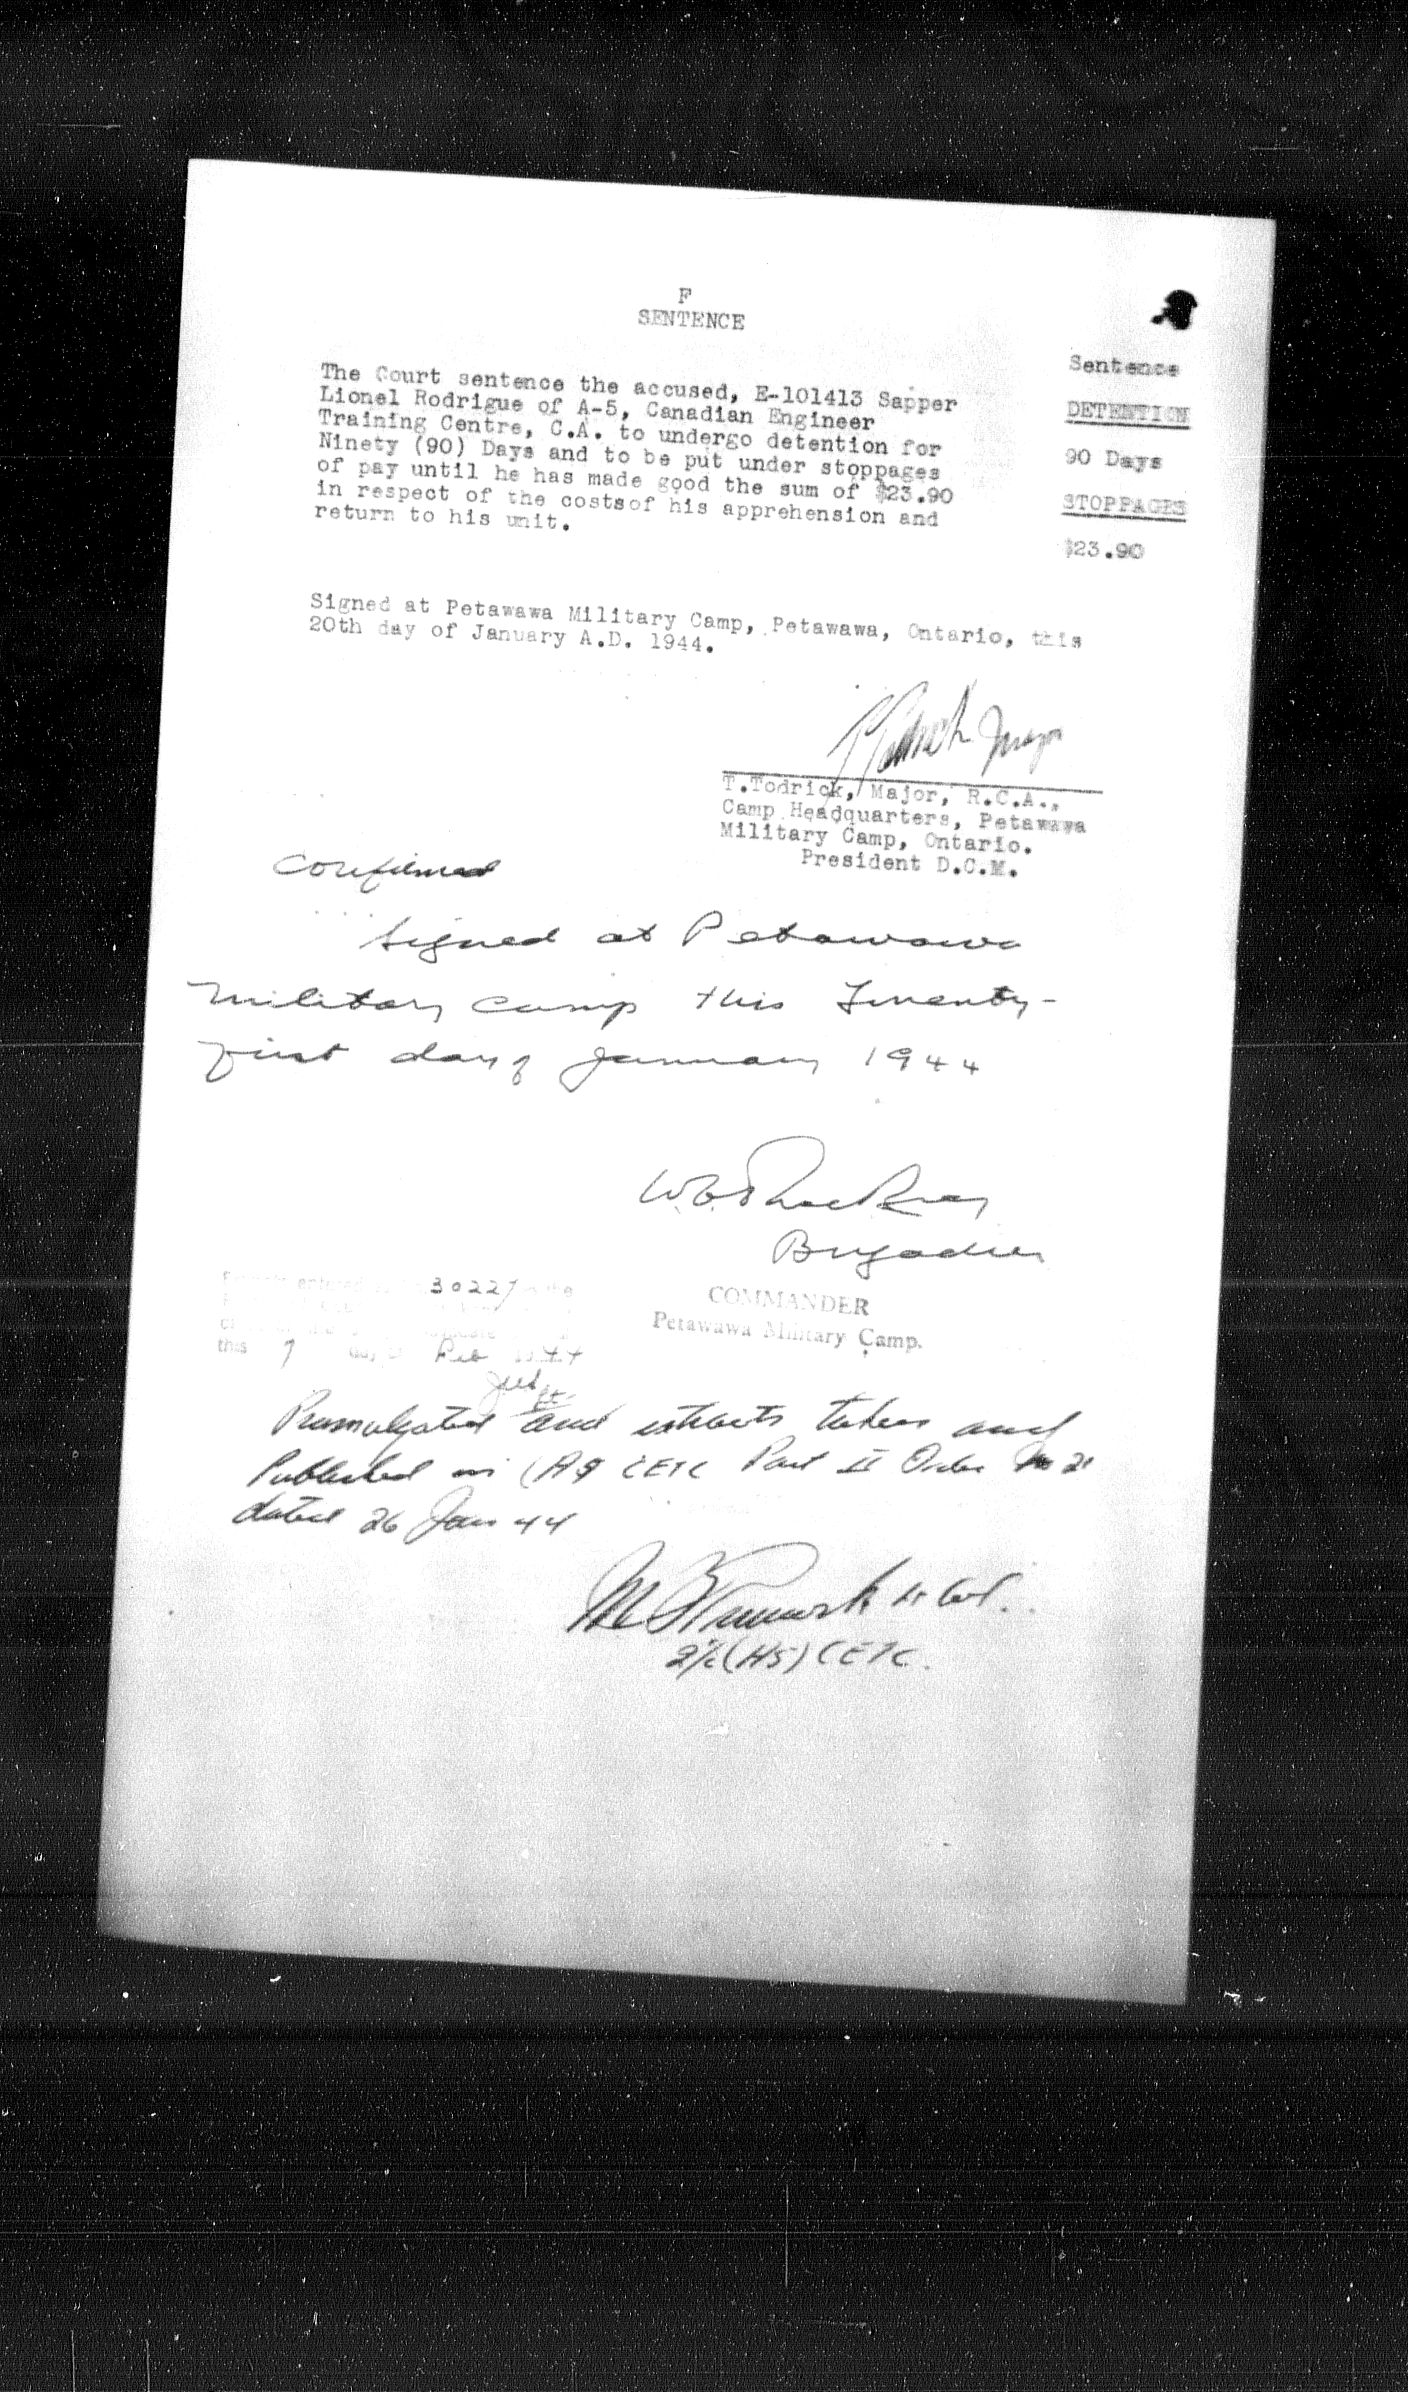 F
SENTENCE
The Court sentence the accused, E-101413 Sapper
Lionel Rodrigue of A-5, Canadian Engineer
Training Centre, C.A. to undergo detention for
Ninety (90) Days and to be put under stoppages
of pay until he has made good the sum of $23.90
in respect of the costsof his apprehension and
return to his unit.
Sentence
DETENTION
90 Days
STOPPAGES
$23.90
Signed at Petawawa Military Camp, Petawawa, Ontario, this
20th day of January A.D. 1944.
Major
T.Todrick, Major, R.C.A.,
Camp Headquarters, Petawawa
Military Camp, Ontario.
President D.C.M.
Confirmed
Signed at Petawawa
Military Camp this Twenty-
first day of January 1944
Brigadier
COMMANDER
Petawawa Military Camp.
entered 30227 the
this 7 day Feb 1944
Promulgated and extracts taken and
Published in CETC Part II Order No 21
dated 26 Jan 44
Lt Col.
CETC.